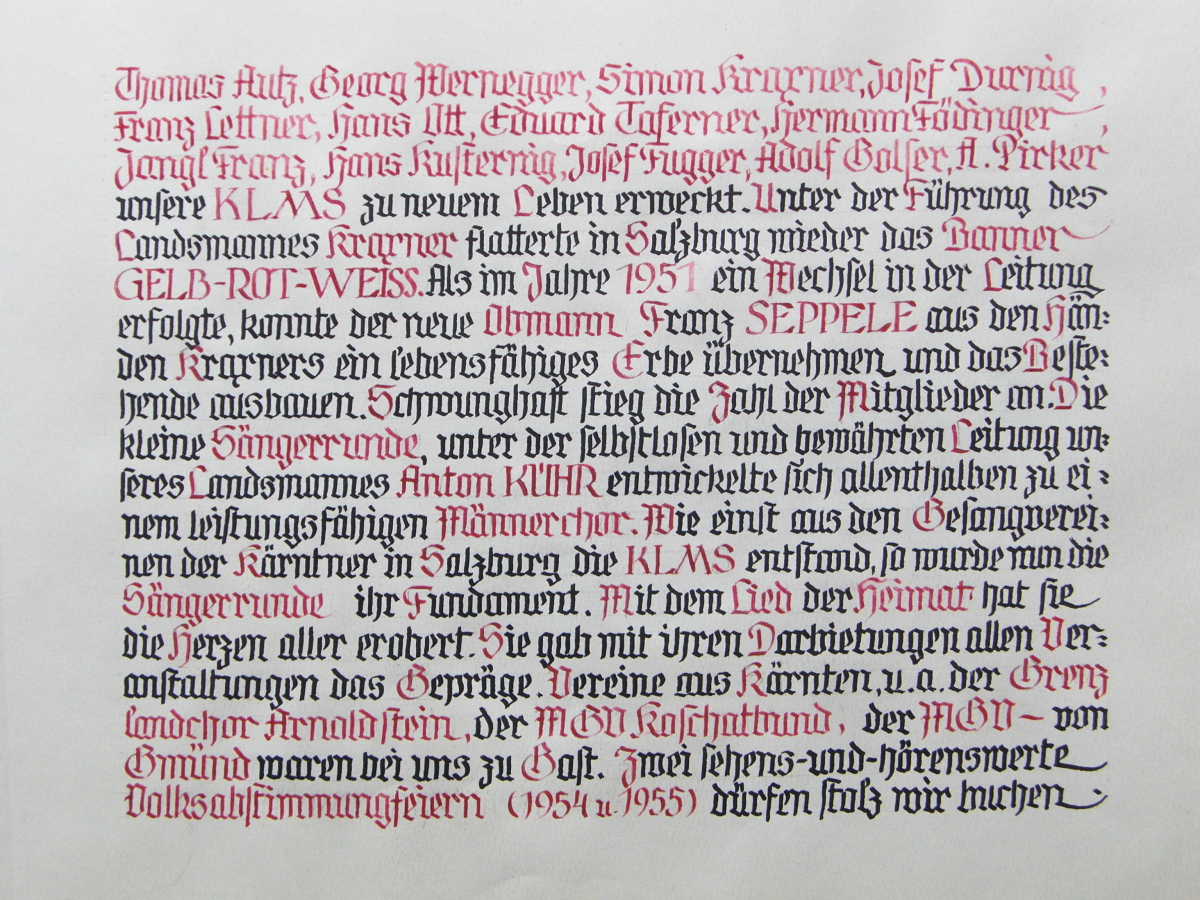 Thomas Autz, Georg Wernegger, Simon Kraxner, Josef Durnig,
Franz Lettner, Hans Ott, Eduard Taferner, Hermann Födinger,
Jangl Franz, Hans Kusternig, Josef Fugger, Adolf Golser, A. Pirker
unsere KLMS zu neuem Leben erweckt. Unter der Führung des
Landsmannes Kraxner flatterte in Salzburg wieder das Banner
GELB-ROT-WEISS. Als im Jahre 1951 ein Wechsel in der Leitung
erfolgte, konnte der neue Obmann Franz SEPPELE aus den Hän=
den Kraxners ein lebensfähiges Erbe übernehmen und das Beste=
hende ausbauen. Schwunghaft stieg die Zahl der Mitglieder an. Die
kleine Sängerrunde, unter der selbstlosen und bewährten Leitung un=
seres Landsmannes Anton KÜHR entwickelte sich allenthalben zu ei=
nem leistungsfähigen Männerchor. Wie einst aus den Gesangverei=
nen der Kärntner in Salzburg die KLMS entstand, so wurde nun die
Sängerrunde ihr Fundament. Mit dem Lied der Heimat hat sie
die Herzen aller erobert. Sie gab mit ihren Darbietungen allen Ver=
anstaltungen das Gepräge. Vereine aus Kärnten, u. a. der Grenz
landchor Arnoldstein, der MGV Koschatbund, der MGV - von
Gmünd waren bei uns zu Gast. Zwei sehens-und-hörenswerte
Volksabstimmungfeiern (1954 u. 1955) dürfen stolz wir buchen.